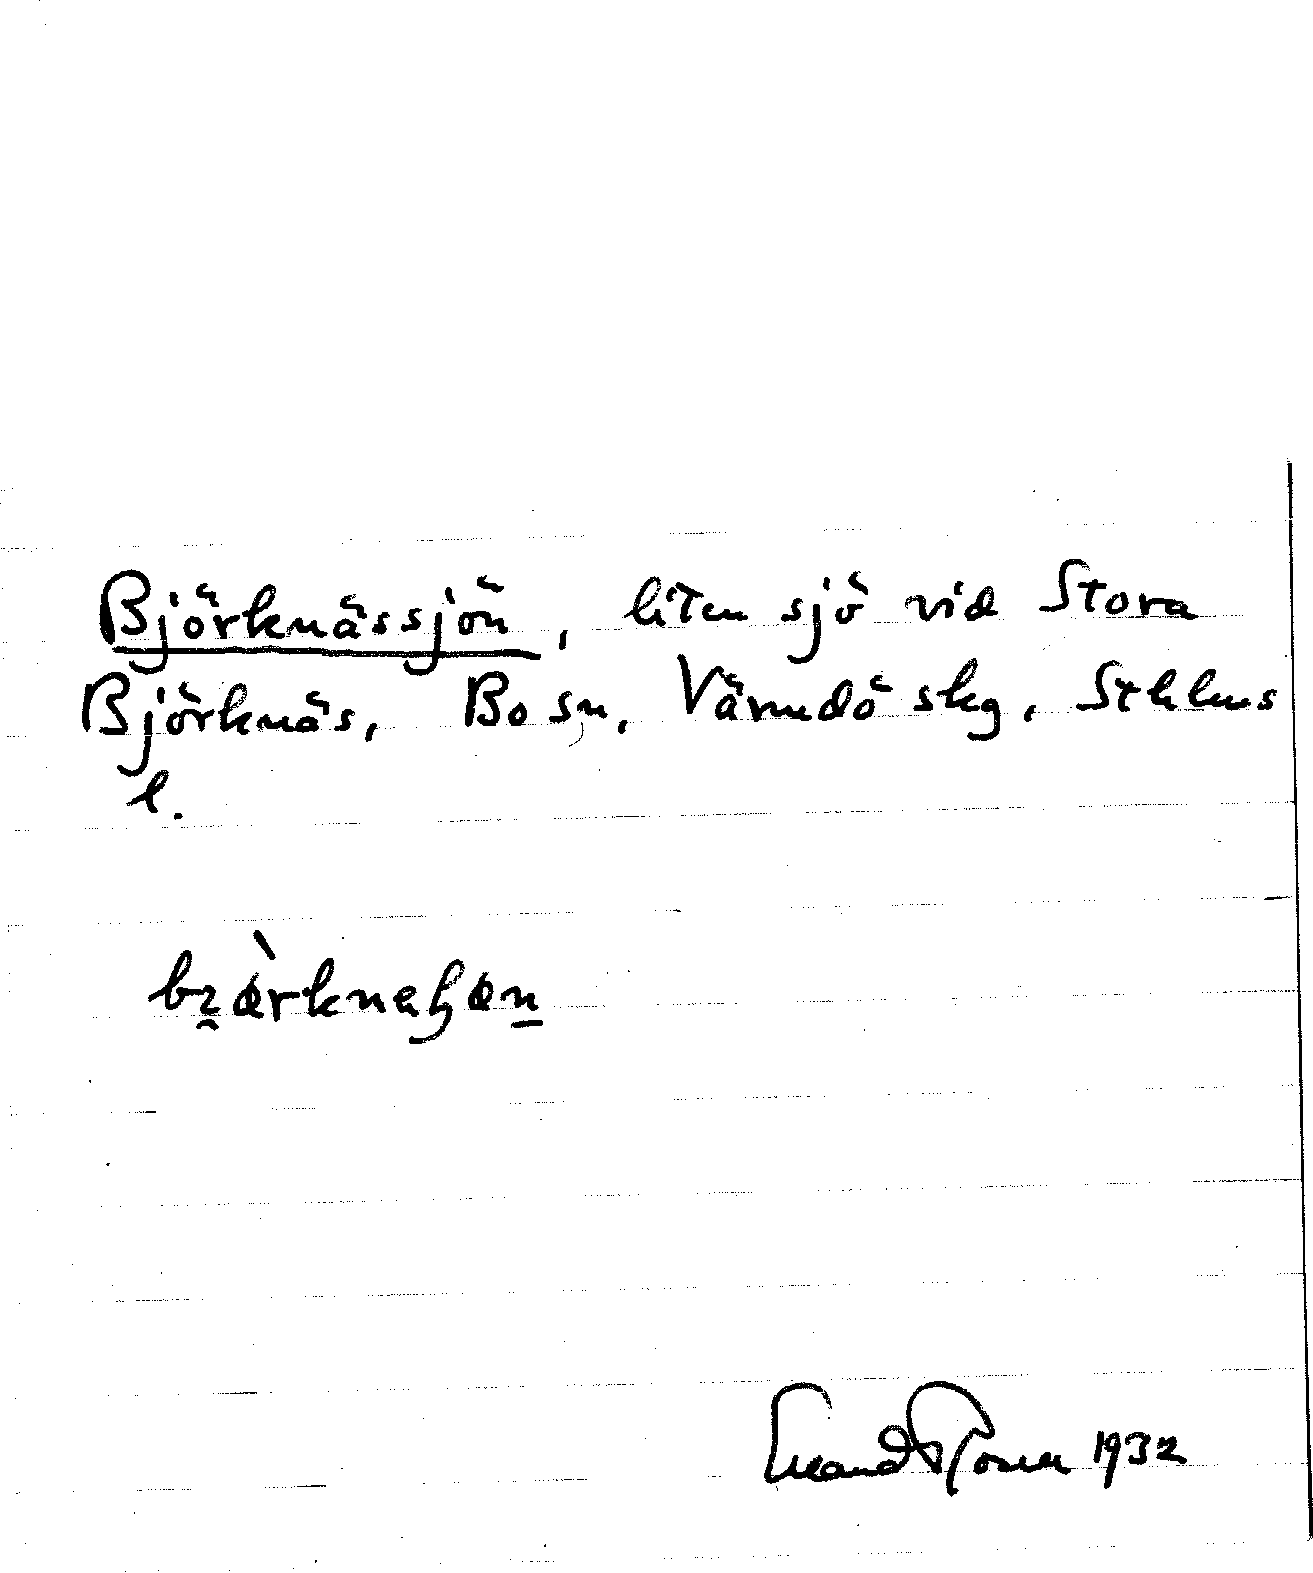 Björknässjön, liten sjö vid Stora
Björknäs, Bo sn, Värmdö skg, Sthlms
l.
1932